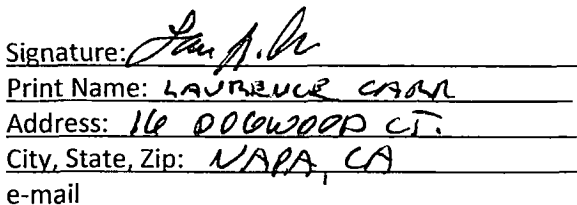 Signature:
Print Name: LAURENCE CARR
Address: 16 DOGWOOD CT.
City, State, Zip: NAPA, CA
e-mail